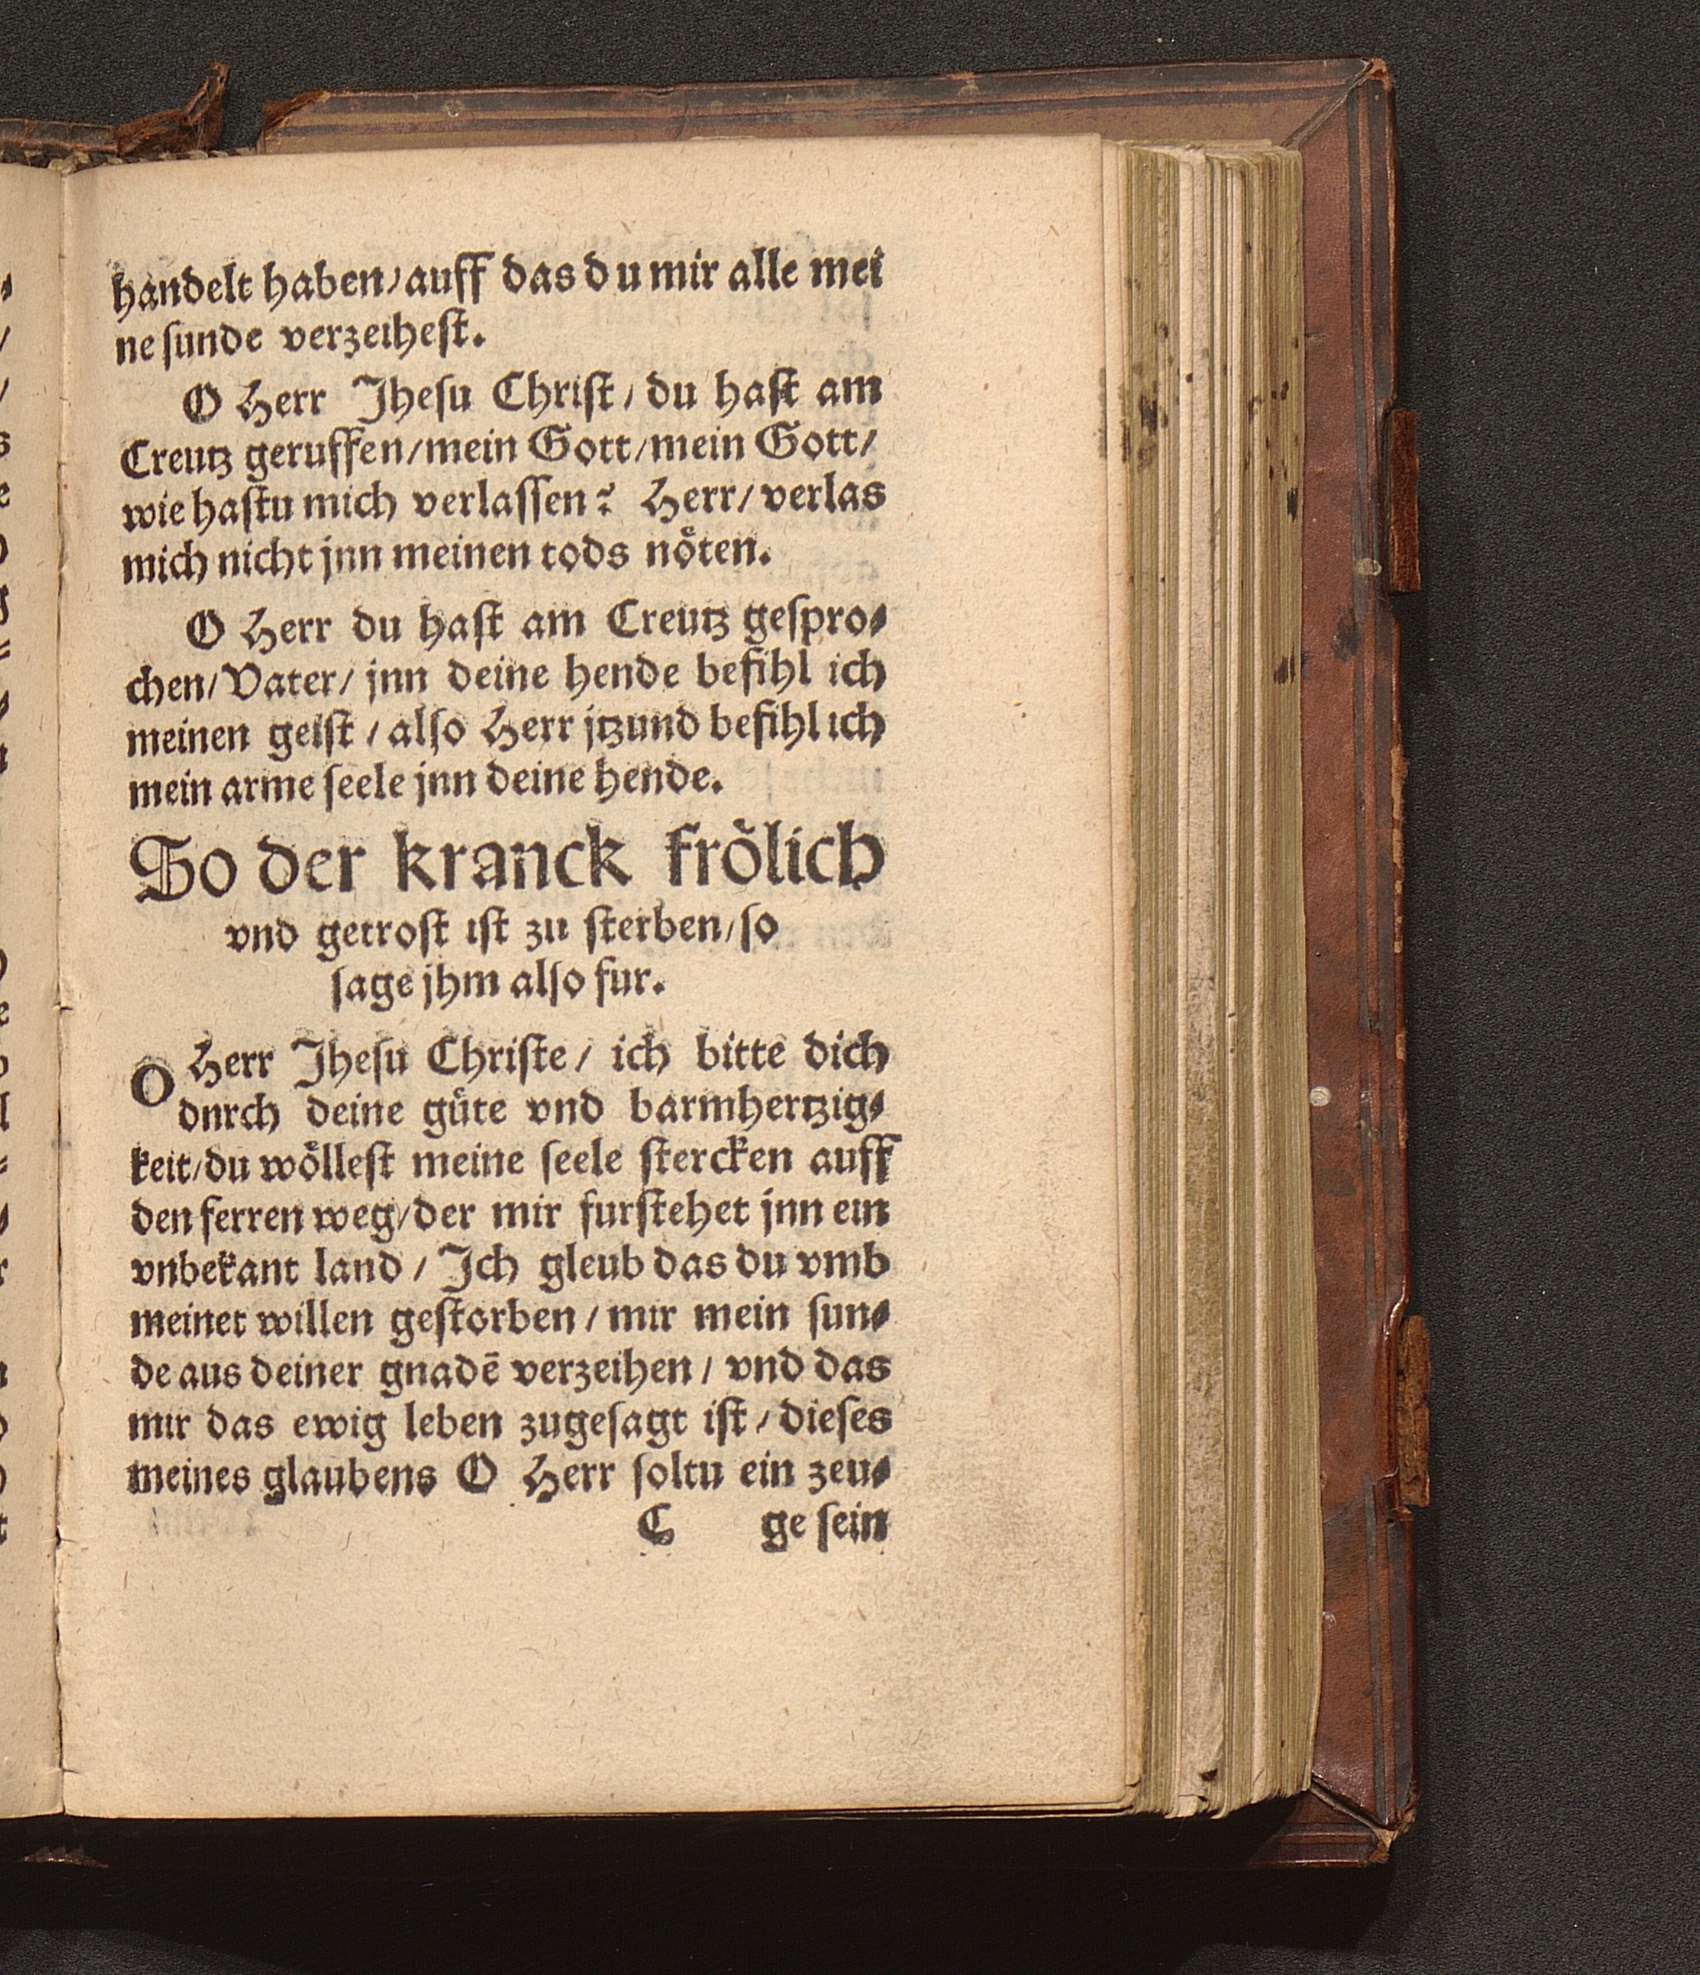 handelt haben/auff das du mir alle mei
ne ſunde verzeiheſt.
O Herr Jheſu Chriſt/ du haſt am
Creutz geruffen/mein Gott/mein Gott/
wie haſtu mich verlaſſen? Herr/ verlas
mich nicht jnn meinen tods noͤten.
O Herr du haſt am Creutz geſpro⸗
chen/ Vater/ jnn deine hende befihl ich
meinen geiſt/ alſo Herr jtzund befihl ich
mein arme ſeele jnn deine hende.
So der kranck froͤlich
vnd getroſt iſt zu ſterben/ſo
ſage jhm alſo fur.
O Herr Jheſu Chriſte/ ich bitte dich
dnrch deine guͤte vnd barmhertzig⸗
keit/du woͤlleſt meine ſeele ſtercken auff
den ferren weg/der mir furſtehet jnn ein
vnbekant land/ Jch gleub das du vmb
meinet willen geſtorben/ mir mein ſun⸗
de aus deiner gnadē verzeihen/ vnd das
mir das ewig leben zugeſagt iſt/ dieſes
meines glaubens O Herr ſoltu ein zeu⸗
C ge ſein